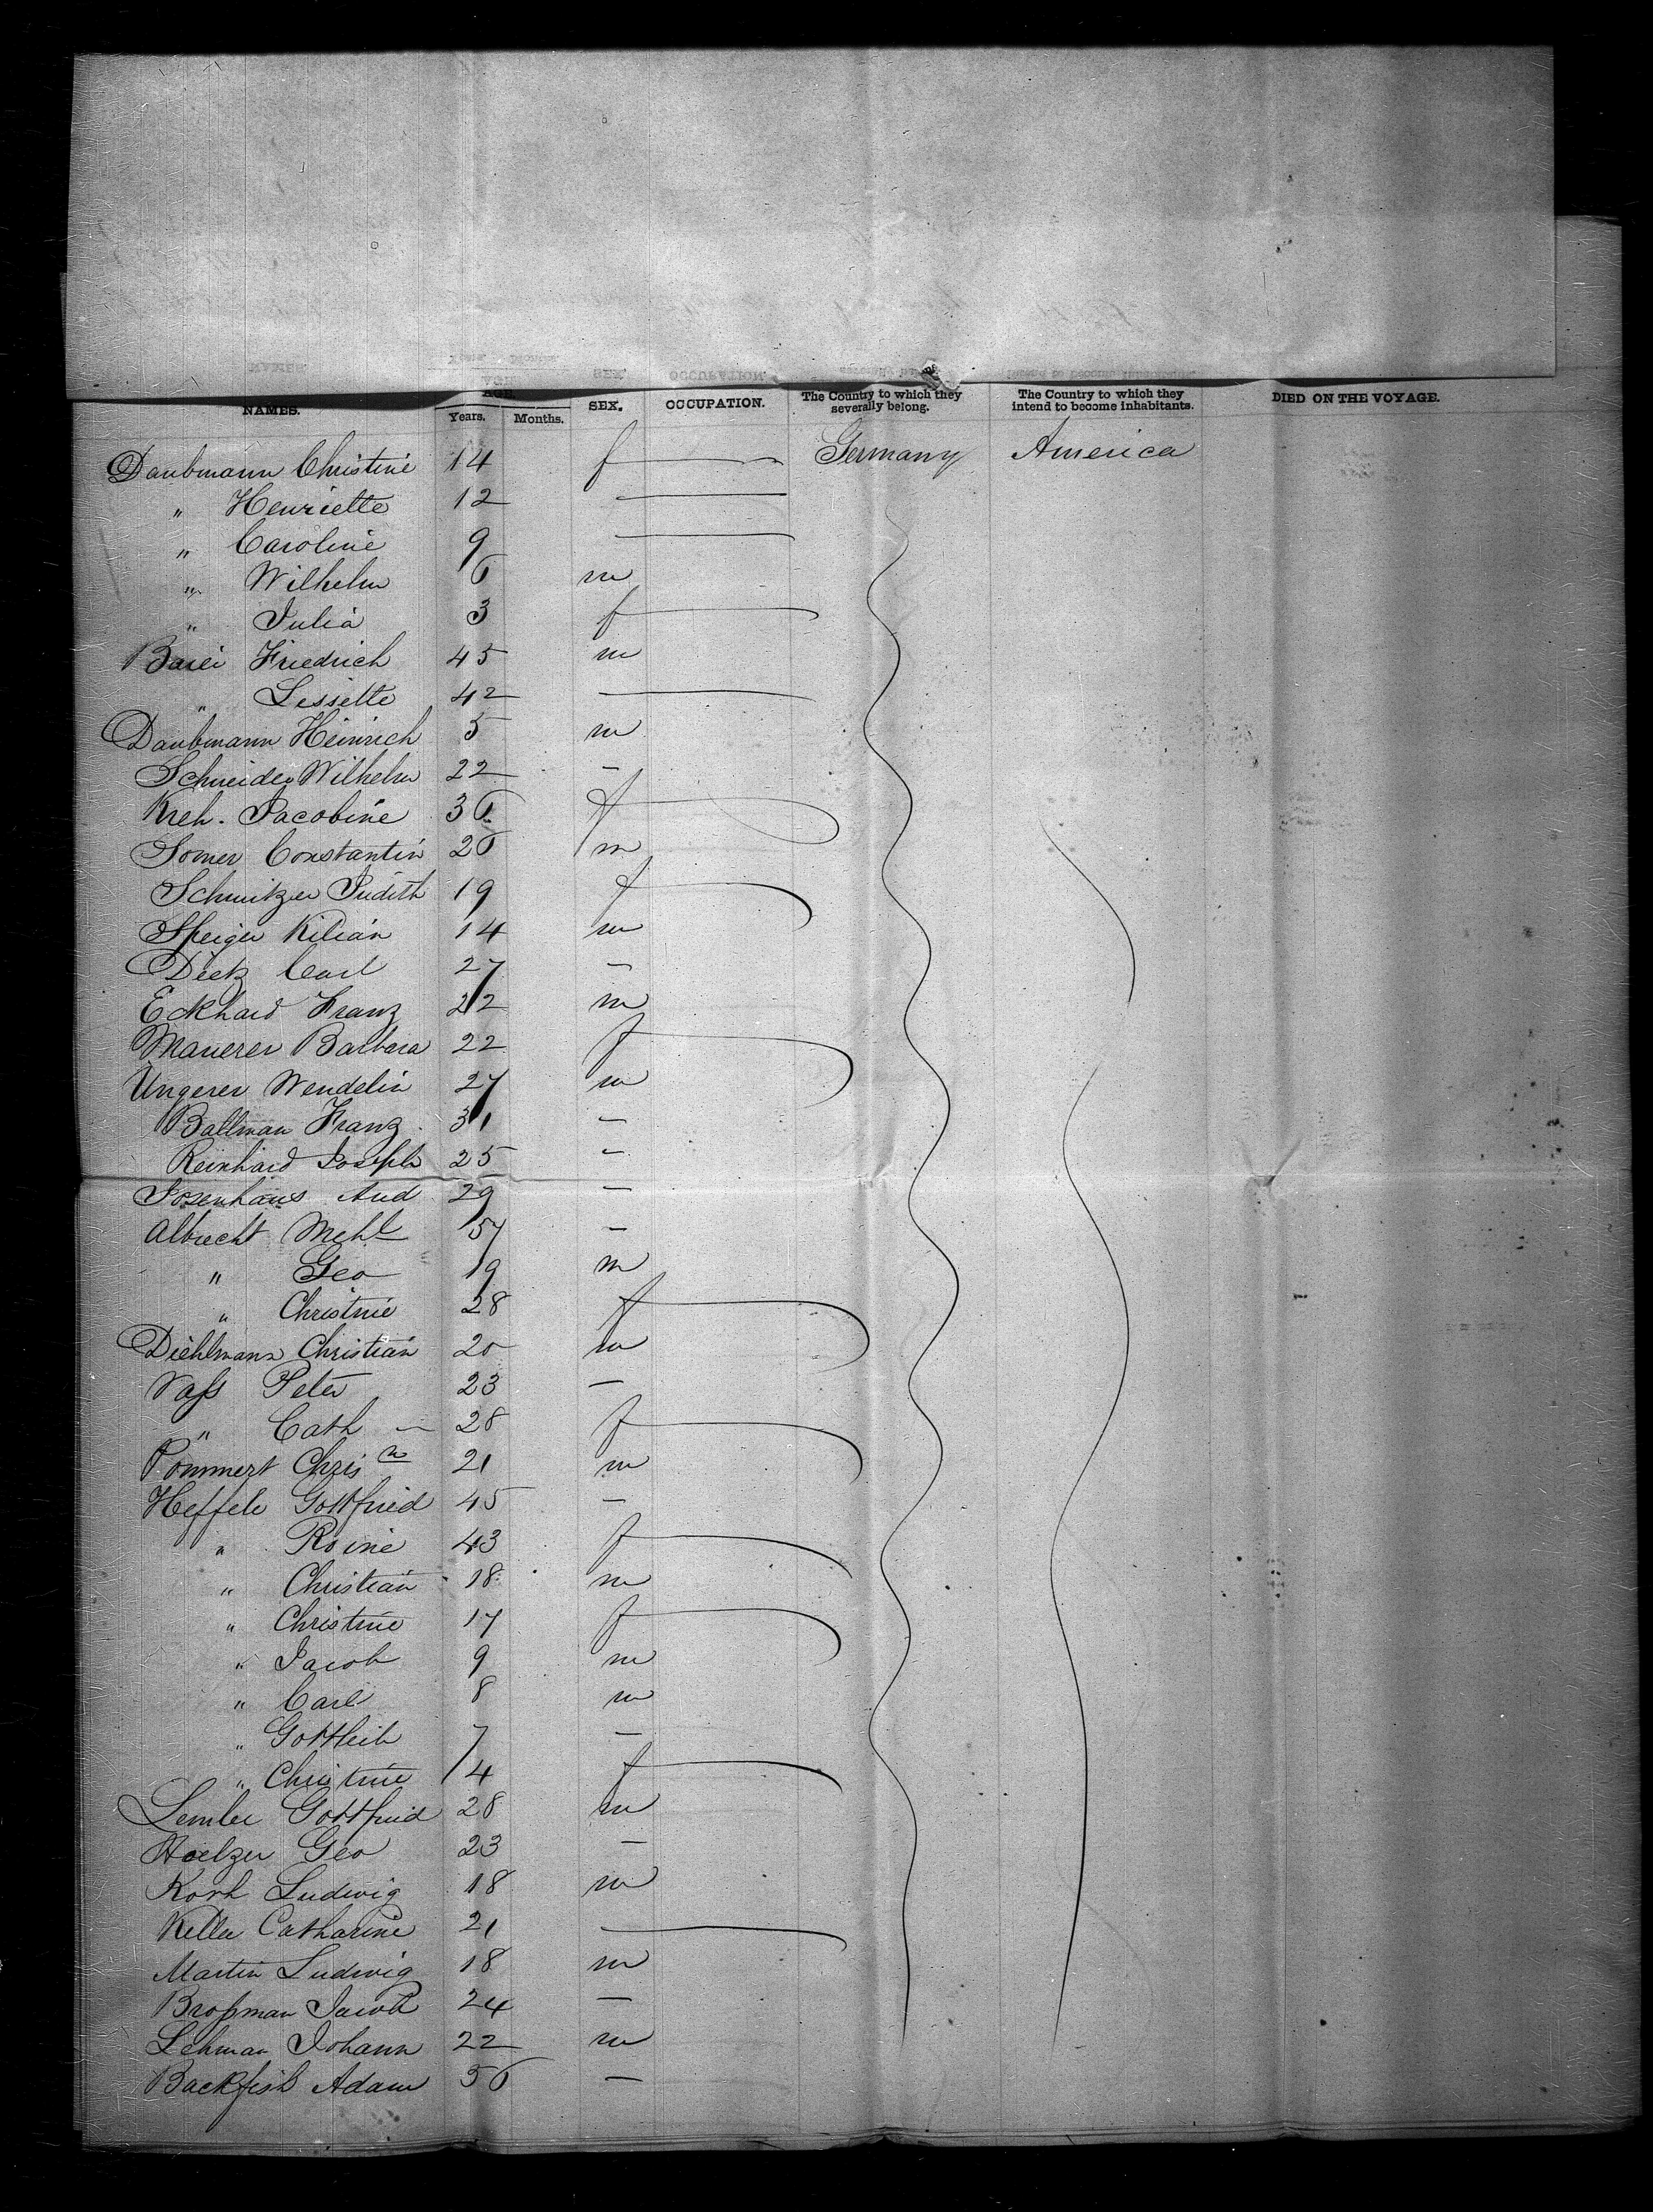 NAMES. AGE. Years. Months. SEX. OCCUPATION. The Country to which they severally belong. The Country to which they intend to become inhabitants. DIED ON THE VOYAGE.
Daubmann Christine 14 f — Germany America
" Henriette 12 —
" Caroline 9 —
" Wilhelm 6 m
" Julia 3 f
Barei Friedrich 45 m
" Lessette 42 —
Daubmann Heinrich 5 m
Schneider Wilhelm 22 —
Kreh. Jacobine 36 f
Somer Constantin 26 m
Schnitzer Judith 19 f
Speiger Kilian 14 m
Dietz Carl 27 —
Eckhard Franz 22 m
Mauerer Barbara 22 f
Ungerer Wendelin 27 m
Ballman Franz 31 —
Reinhard Joseph 25 —
Josenhans And 29 —
Albrecht Mchl 57 —
" Geo 19 m
" Christine 28 f
Diehlmann Christian 20 m
Vass Peter 23 —
" Cath — 28 f
Pommert Chrisn 21 m
Heffele Gottfried 45 —
" Rosine 43 f
" Christian 18 m
" Christine 17 f
" Jacob 9 m
" Carl 8 m
" Gottleib 7 —
" Christine 4 f
Lemlee Gottfried 28 m
Hoelzer Geo 23 —
Korh Ludwig 18 m
Keller Catharine 21 —
Martin Ludwig 18 m
Brossman Jacob 24 —
Lehman Johann 22 m
Backfish Adam 56 —